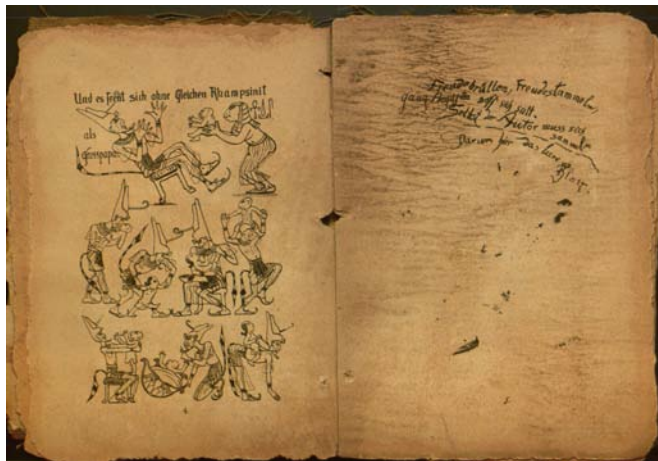 Und es freut sich ohne Gleichen Rhampsinit
als
Grosspapa.
Freudebrüllen, Freudestammeln,
ganz Aegypten
Selbst der Autor muss sich
sammeln
Darum hier das leere